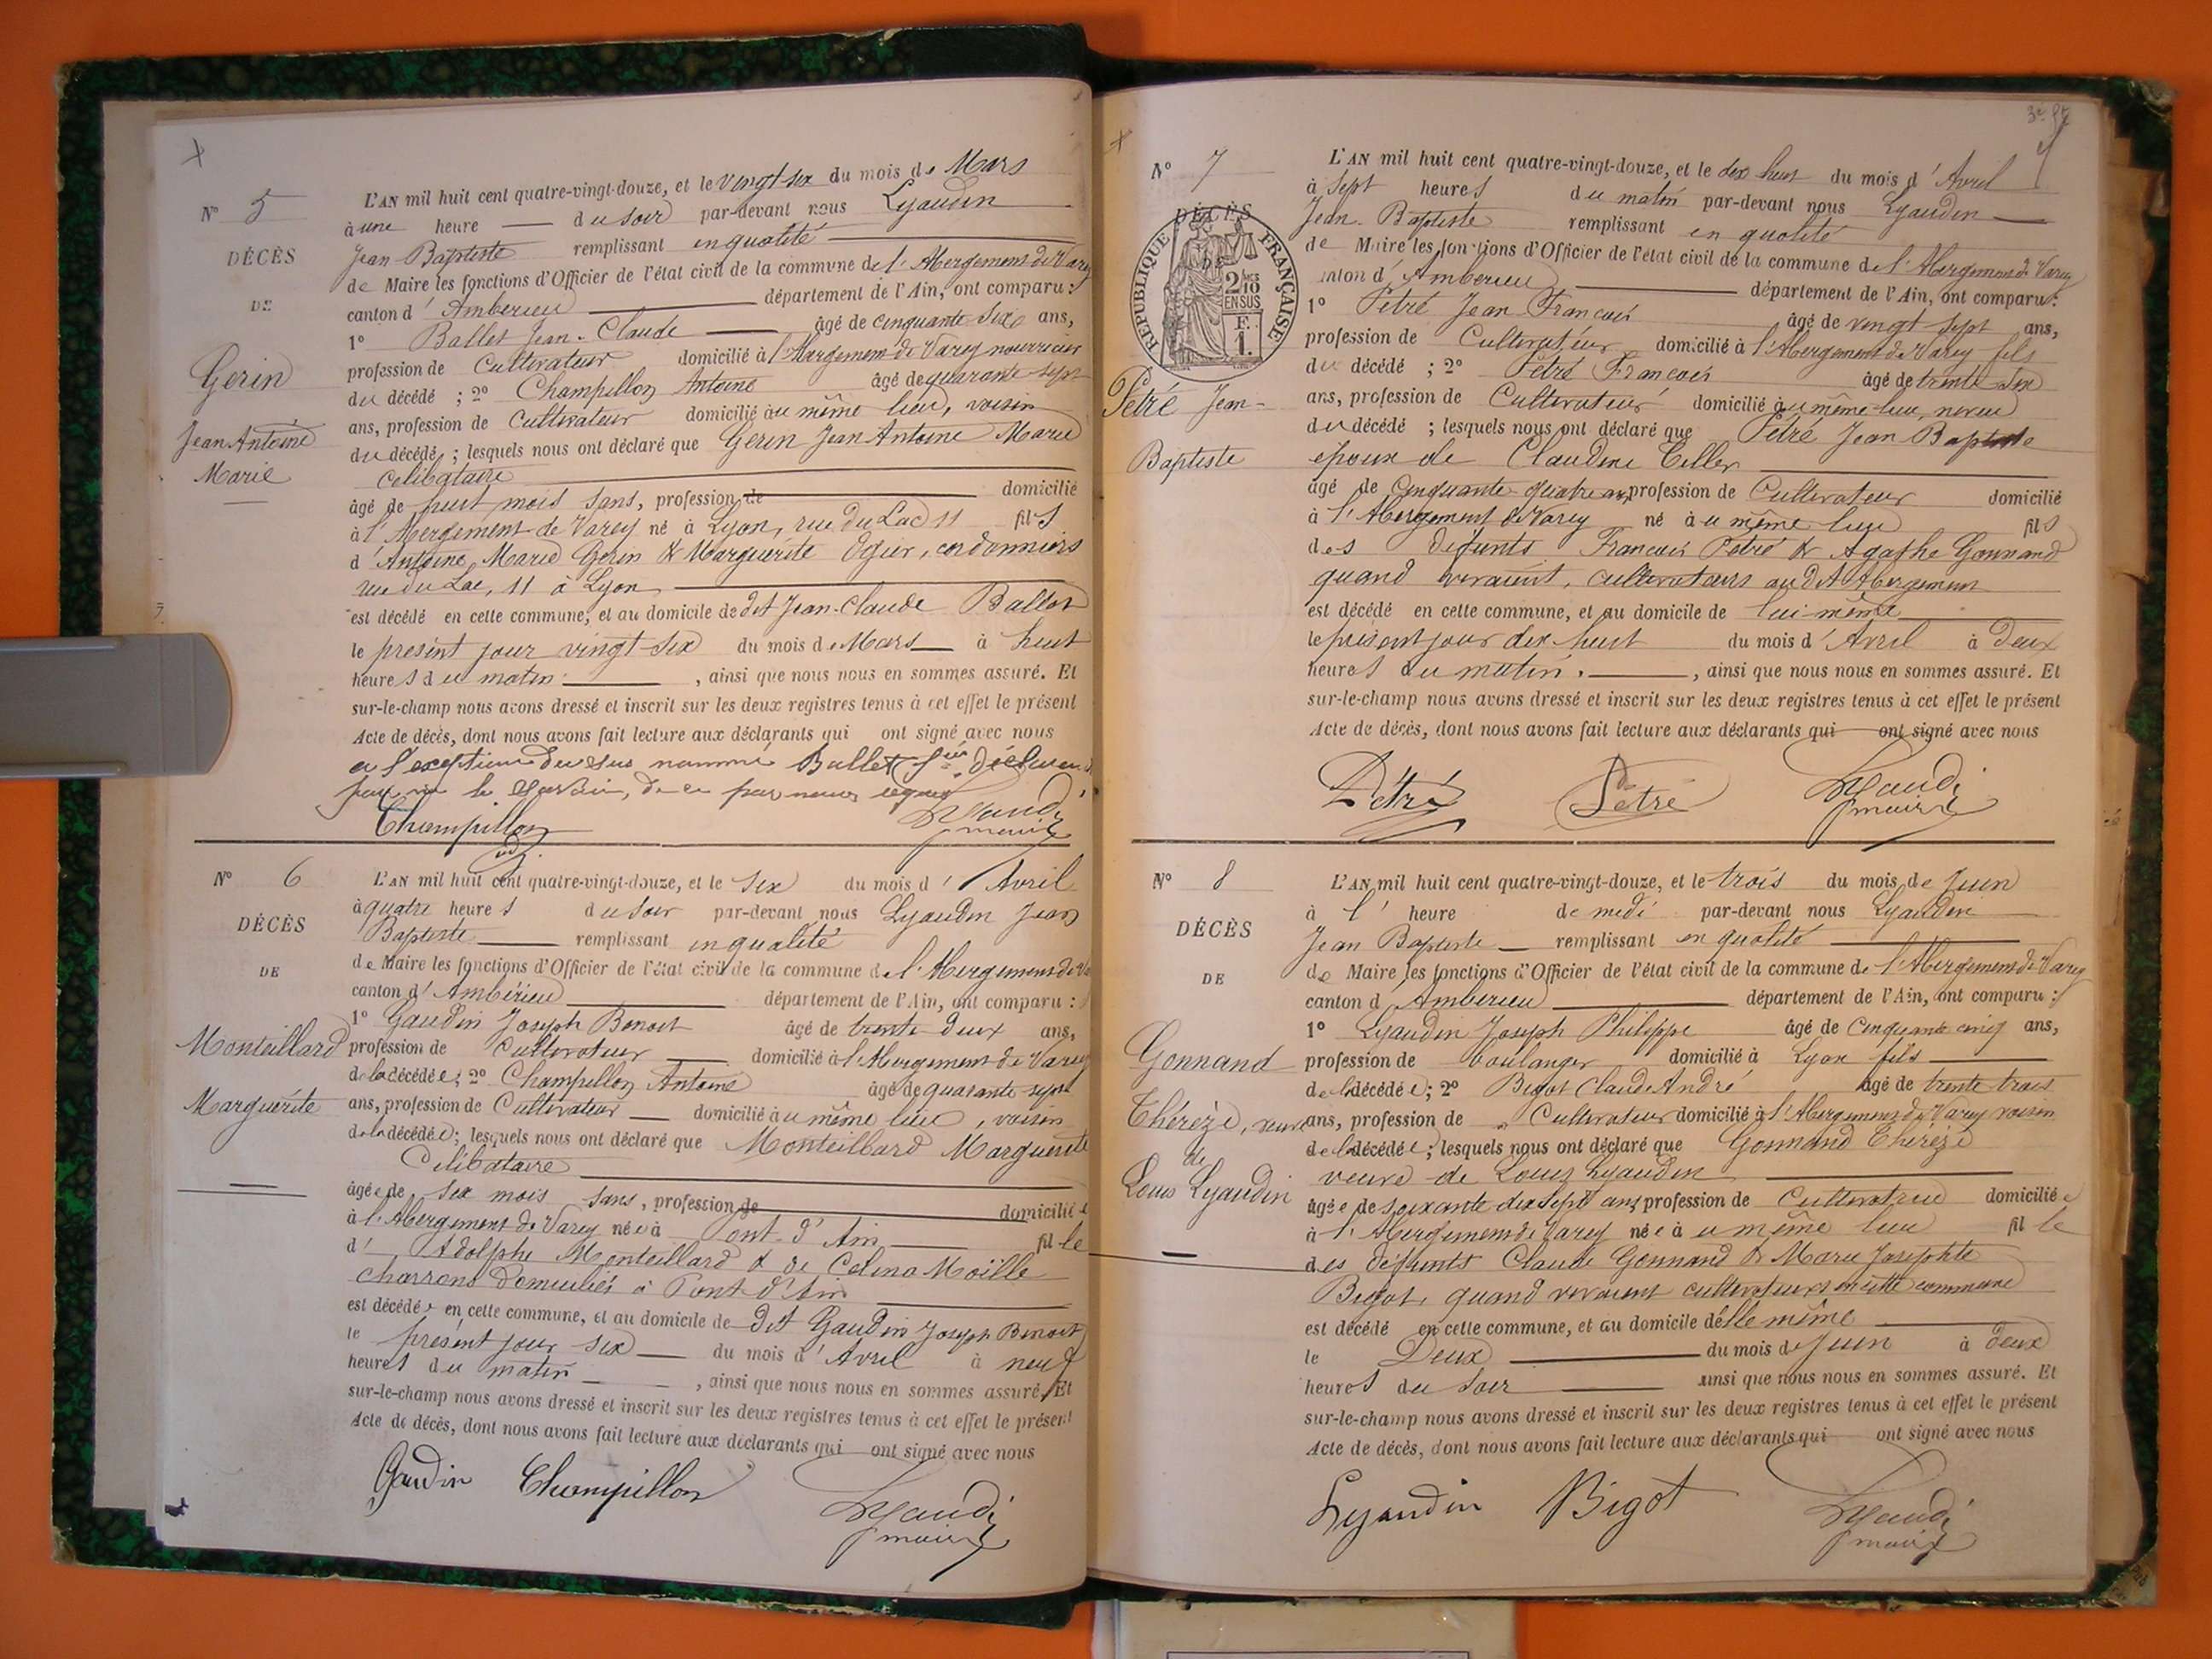 N° 5
DÉCÈS
DE
Gerin
Jean Antoine
Marie
L'AN mil huit cent quatre-vingt-douze, et le vingt-six du mois de Mars
à une heure du soir par-devant nous Lyaudin
Jean Baptiste remplissant en qualité
de Maire les fonctions d'Officier de l'état civil de la commune de l'Abergement de Varey
canton d'Amberieu département de l'Ain, ont comparu :
1° Ballet Jean-Claude âgé de cinquante six ans,
profession de Cultivateur domicilié à l'Abergement de Varey nourricier
du décédé ; 2° Champillon Antoine âgé de quarante sept
ans, profession de Cultivateur domicilié au même lieu, voisin
du décédé ; lesquels nous ont déclaré que Gerin Jean Antoine Marie
Celibataire
âgé de huit mois sans, profession de domicilié
à l'Abergement de Varey né à Lyon, rue du Lac 11 fils
d'Antoine Marie Gerin & Marguerite Ogier, cordonniers
rue du Lac, 11 à Lyon
est décédé en cette commune, et au domicile de dit Jean-Claude Ballet
le présent jour vingt-six du mois de Mars à huit
heures du matin , ainsi que nous nous en sommes assuré. Et
sur-le-champ nous avons dressé et inscrit sur les deux registres tenus à cet effet le présent
Acte de décès, dont nous avons fait lecture aux déclarants qui ont signé avec nous
a l'exception du sus nommé Ballet
Champillon Lyaudi
maire
N° 6
DÉCÈS
DE
Monteillard
Marguerite
L'AN mil huit cent quatre-vingt-douze, et le six du mois d'Avril
à quatre heures du soir par-devant nous Lyaudin Jean
Baptiste remplissant en qualité
de Maire les fonctions d'Officier de l'état civil de la commune de l'Abergement de Va
canton d'Ambérieu département de l'Ain, ont comparu :
1° Gaudin Joseph Benoit âgé de trente deux ans,
profession de Cultivateur domicilié à l'Abergement de Varey
de la décédée ; 2° Champillon Antoine âgé de quarante sept
ans, profession de Cultivateur domicilié au même lieu, voisin
de la décédée ; lesquels nous ont déclaré que Monteillard Marguerite
Célibataire
âgée de six mois sans, profession de domiciliée
à l'Abergement de Varey née à Pont-d'Ain fille
d'Adolphe Monteillard & de Celina Moille
charrons domiciliés à Pont-d'Ain
est décédée en cette commune, et au domicile de dit Gaudin Joseph Benoit
le présent jour six du mois d'Avril à neuf
heures du matin , ainsi que nous nous en sommes assuré. Et
sur-le-champ nous avons dressé et inscrit sur les deux registres tenus à cet effet le présent
Acte de décès, dont nous avons fait lecture aux déclarants qui ont signé avec nous
Gaudin Champillon Lyaudi
maire
N° 7
DÉCÈS
RÉPUBLIQUE FRANÇAISE
2/10
EN SUS
F.
1.
Pétré Jean-
Baptiste
L'AN mil huit cent quatre-vingt-douze, et le dix huit du mois d'Avril
à sept heures du matin par-devant nous Lyaudin
Jean-Baptiste remplissant en qualité
de Maire les fonctions d'Officier de l'état civil de la commune de l'Abergement de Varey
canton d'Amberieu département de l'Ain, ont comparu :
1° Pétré Jean-Francois âgé de vingt sept ans,
profession de Cultivateur domicilié à l'Abergement de Varey fils
du décédé ; 2° Pétré Francois âgé de trente six
ans, profession de Cultivateur domicilié au même lieu, neveu
du décédé ; lesquels nous ont déclaré que Pétré Jean-Baptiste
époux de Claudine Teller
âgé de cinquante quatre ans profession de Cultivateur domicilié
à l'Abergement de Varey né au même lieu fils
des défunts Francois Pétré & Agathe Gonnand
quand vivaient, cultivateurs au dit Abergement
est décédé en cette commune, et au domicile de lui-même
le présent jour dix huit du mois d'Avril à deux
heures du matin , ainsi que nous nous en sommes assuré. Et
sur-le-champ nous avons dressé et inscrit sur les deux registres tenus à cet effet le présent
Acte de décès, dont nous avons fait lecture aux déclarants qui ont signé avec nous
Pétré Pétré Lyaudi
maire
N° 8
DÉCÈS
DE
Gonnand
Thérèze, veuve
de
Louis Lyaudin
L'AN mil huit cent quatre-vingt-douze, et le trois du mois de Juin
à l' heure de midi par-devant nous Lyaudin
Jean Baptiste remplissant en qualité
de Maire les fonctions d'Officier de l'état civil de la commune de l'Abergement de Varey
canton d'Amberieu département de l'Ain, ont comparu :
1° Lyaudin Joseph Philippe âgé de cinquante cinq ans,
profession de boulanger domicilié à Lyon fils
de la décédée ; 2° Bigot Claude André âgé de trente trois
ans, profession de Cultivateur domicilié à l'Abergement de Varey voisin
de la décédée ; lesquels nous ont déclaré que Gonnand Thérèze
veuve de Louis Lyaudin
âgée de soixante dix sept ans profession de Cultivatrice domiciliée
à l'Abergement de Varey née au même lieu fille
des défunts Claude Gonnand & Marie Josephte
Bigot, quand vivaient cultivateurs en cette commune
est décédé en cette commune, et au domicile d'elle même
le Deux du mois de Juin à deux
heures du soir ainsi que nous nous en sommes assuré. Et
sur-le-champ nous avons dressé et inscrit sur les deux registres tenus à cet effet le présent
Acte de décès, dont nous avons fait lecture aux déclarants qui ont signé avec nous
Lyaudin Bigot Lyaudi
maire